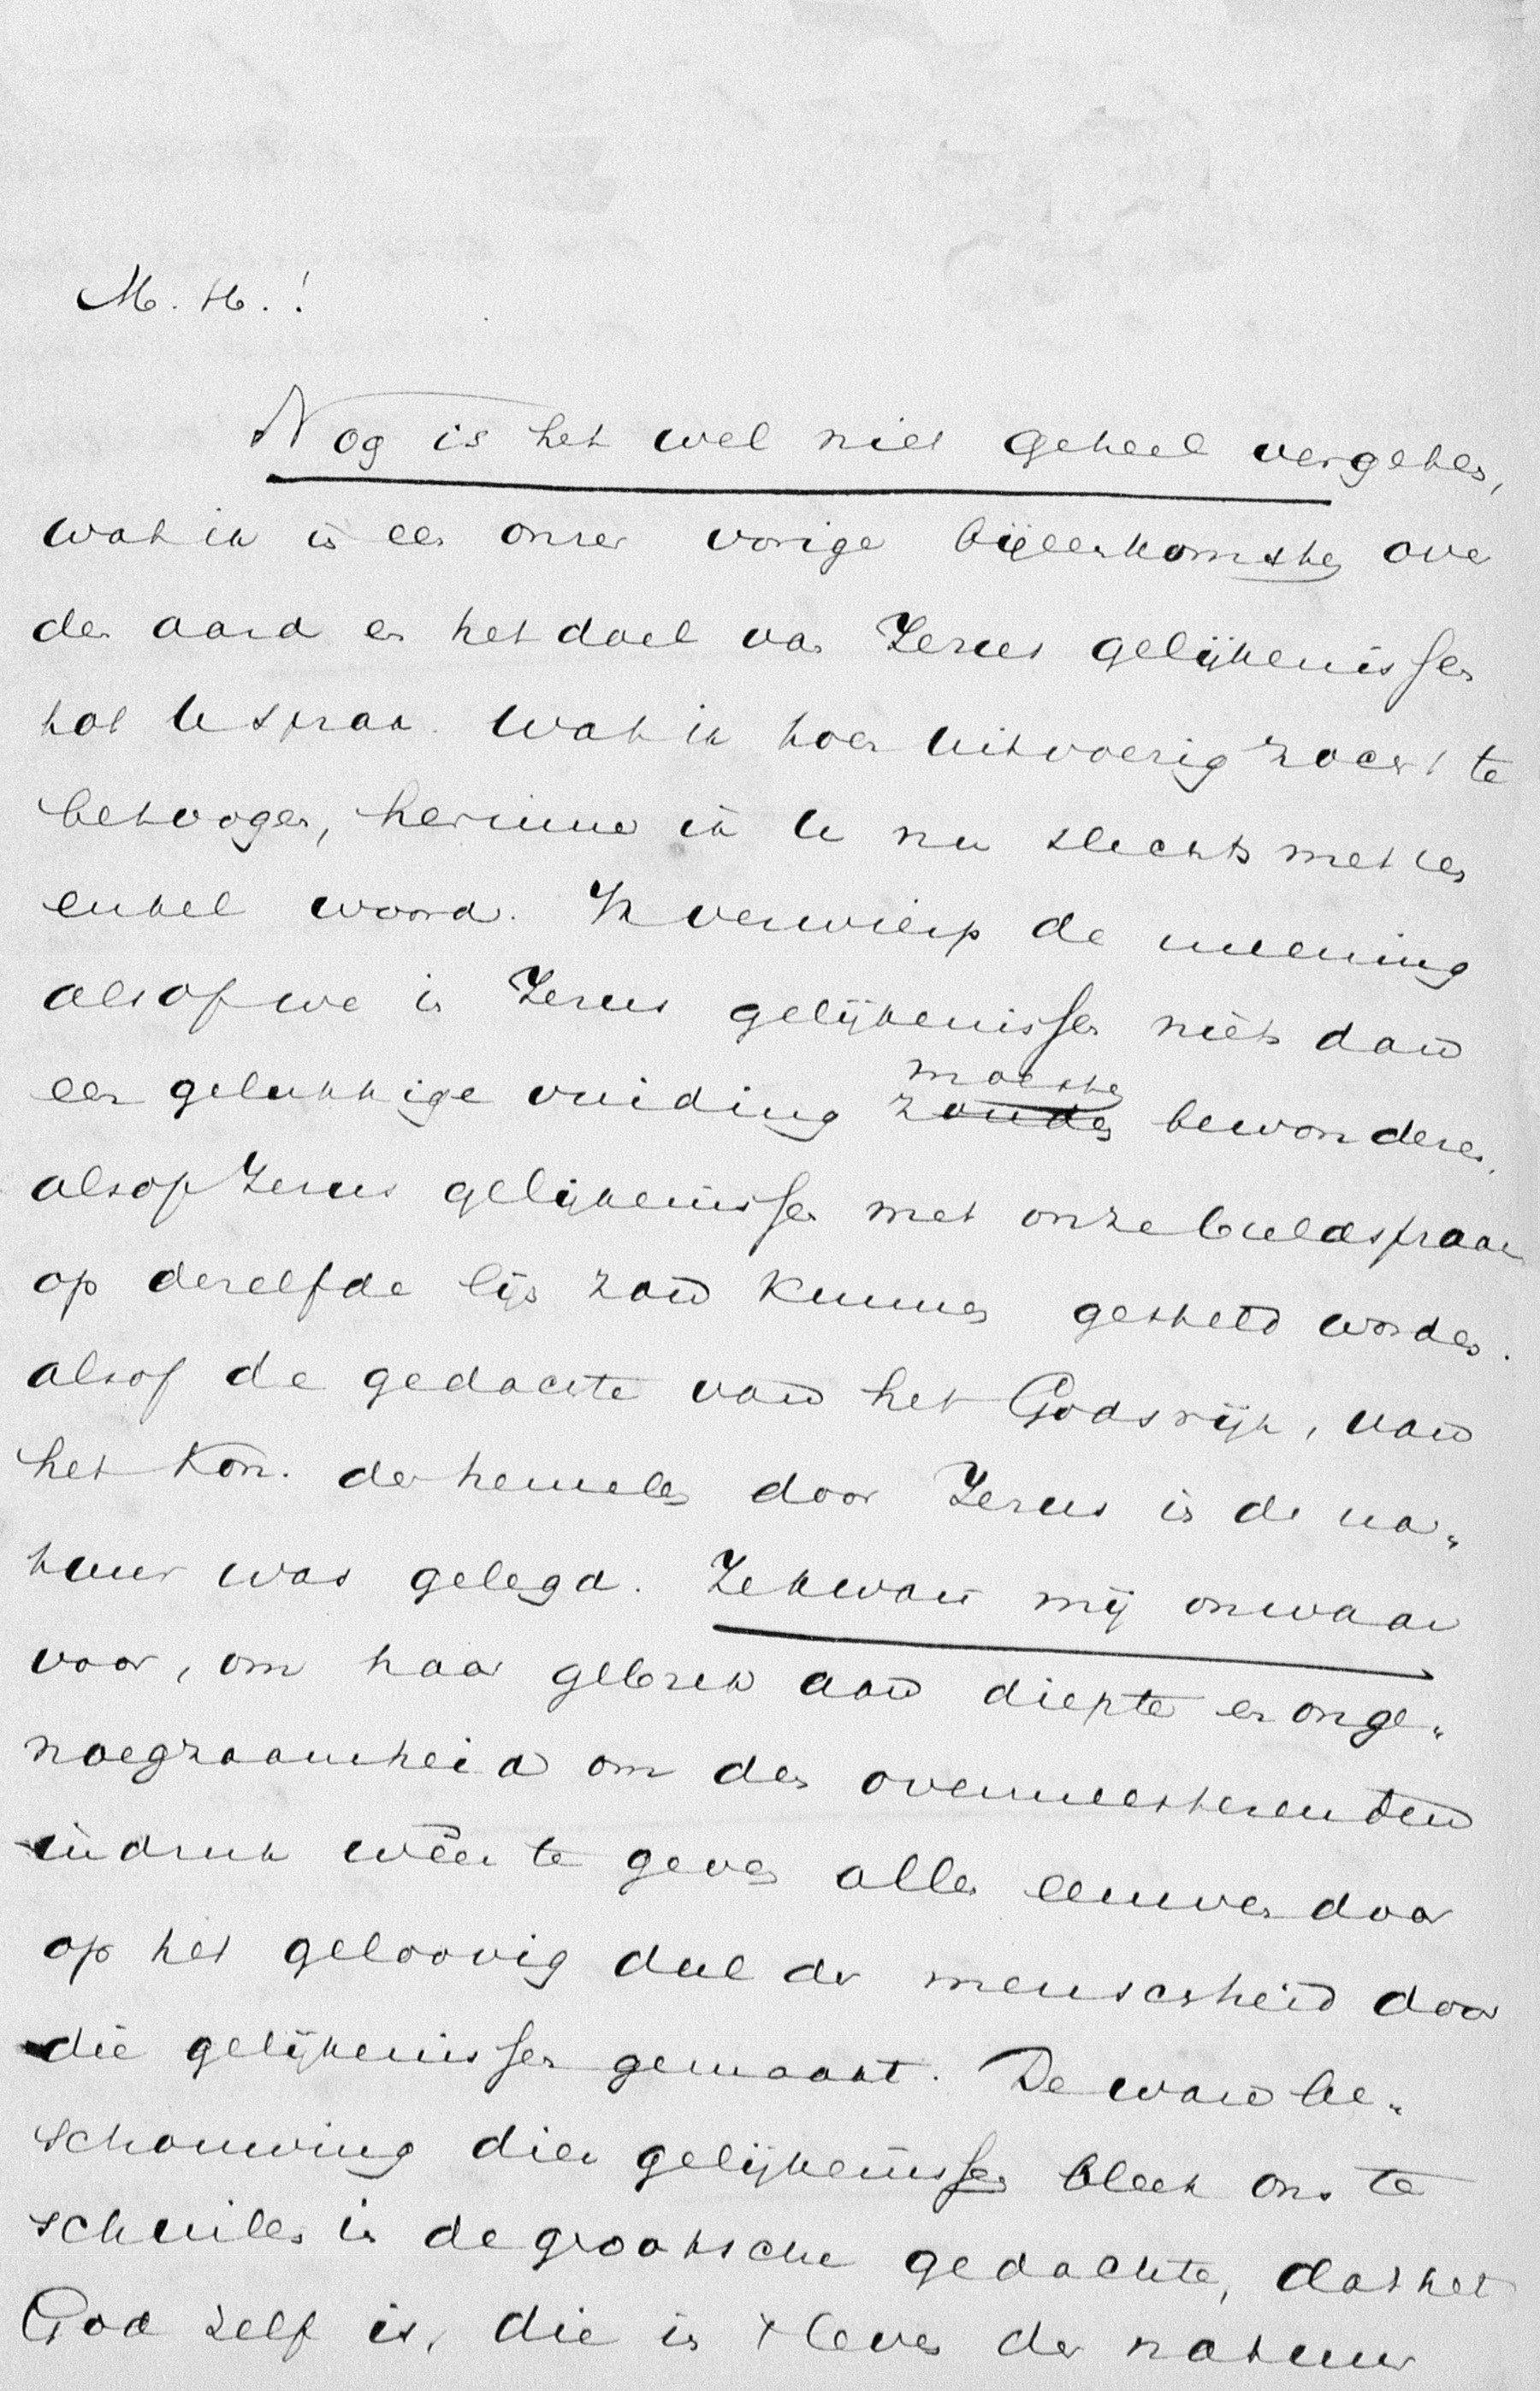 M. H.!
Nog is het wel niet geheel vergeten,
wat ik in een onzer vorige bijeenkomsten over
den aard en het doel van Jezus gelijkenissen
tot U sprak. Wat ik toen uitvoerig zocht te
betoogen, herinner ik U nu slechts met een
enkel woord. Ik verwierp de meening
alsof we in Jezus gelijkenissen niets dan
een gelukkige vinding zouden moesten bewonderen.
alsof Jezus gelijkenissen met onze beeldspraak
op dezelfde lijn zou kunnen gesteld worden.
alsof de gedachte van het Godsrijk, van
het Kon. der hemelen door Jezus in de na„
tuur was gelegd. Ze kwam mij onwaar
voor, om haar gebrek aan diepte en onge„
noegzaamheid om den overmeesterenden
indruk wêer te geven alle eeuwen door
op het geloovig deel der menschheid door
die gelijkenissen gemaakt. De ware be„
schouwing dier gelijkenissen bleek ons te
schuilen in de grootsche gedachte, dat het
God zelf is, die in 't leven der natuur